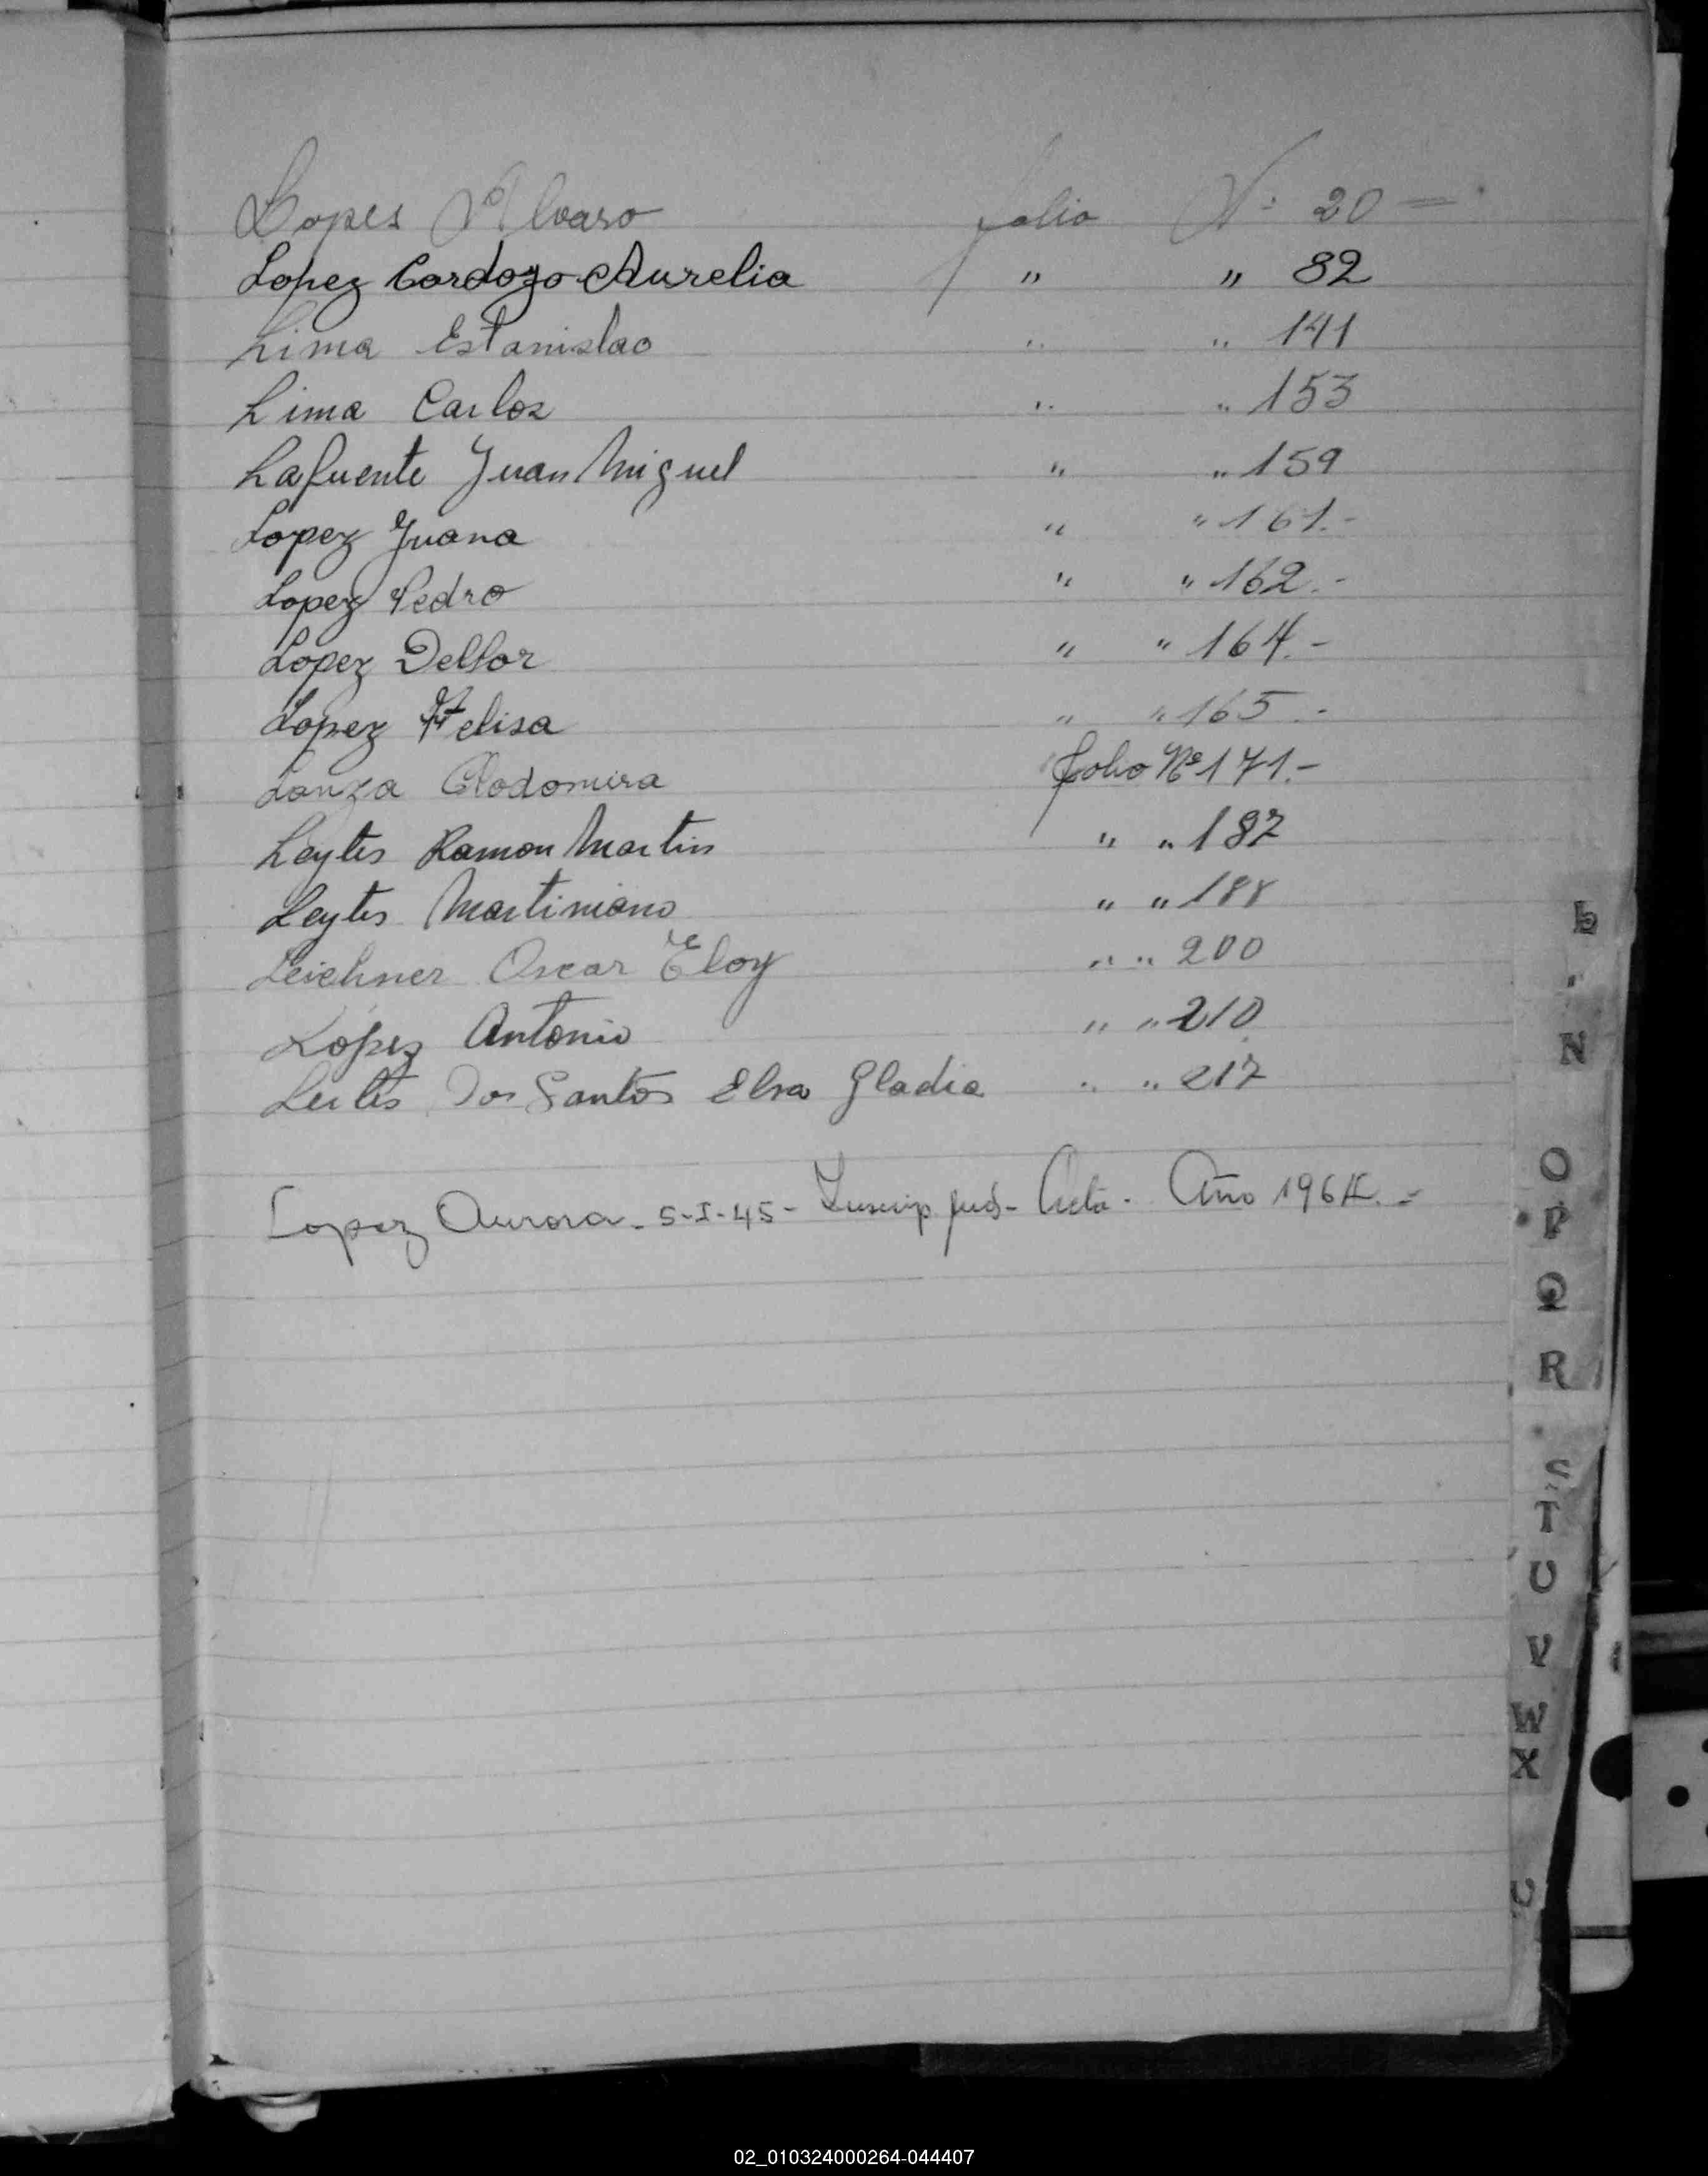 Lopes Alvaro folio Nº 20=
Lopez Cordozo Aurelia " " 82
Lima Estanislao " " 141
Lima Carlos " " 153
Lafuente Juan Miguel " " 159
Lopez Juana " " 161.-
Lopez Pedro " " 162.-
Lopez Delfor " " 164.-
Lopez Felisa " " 165.-
Lanza Clodomira folio Nº 171.-
Leytes Ramon Martin " " 187
Leytes Martiniano " " 188
Leichner Oscar Eloy " " 200
López Antonio " " 210
Leites Dos Santos Elsa Gladia " " 217
Lopez Aurora - 5-I-45 - Inscrip. Jud- Acta - Año 1964.=
L
N
O
P
Q
R
S
T
U
V
W
X
02_010324000264-044407